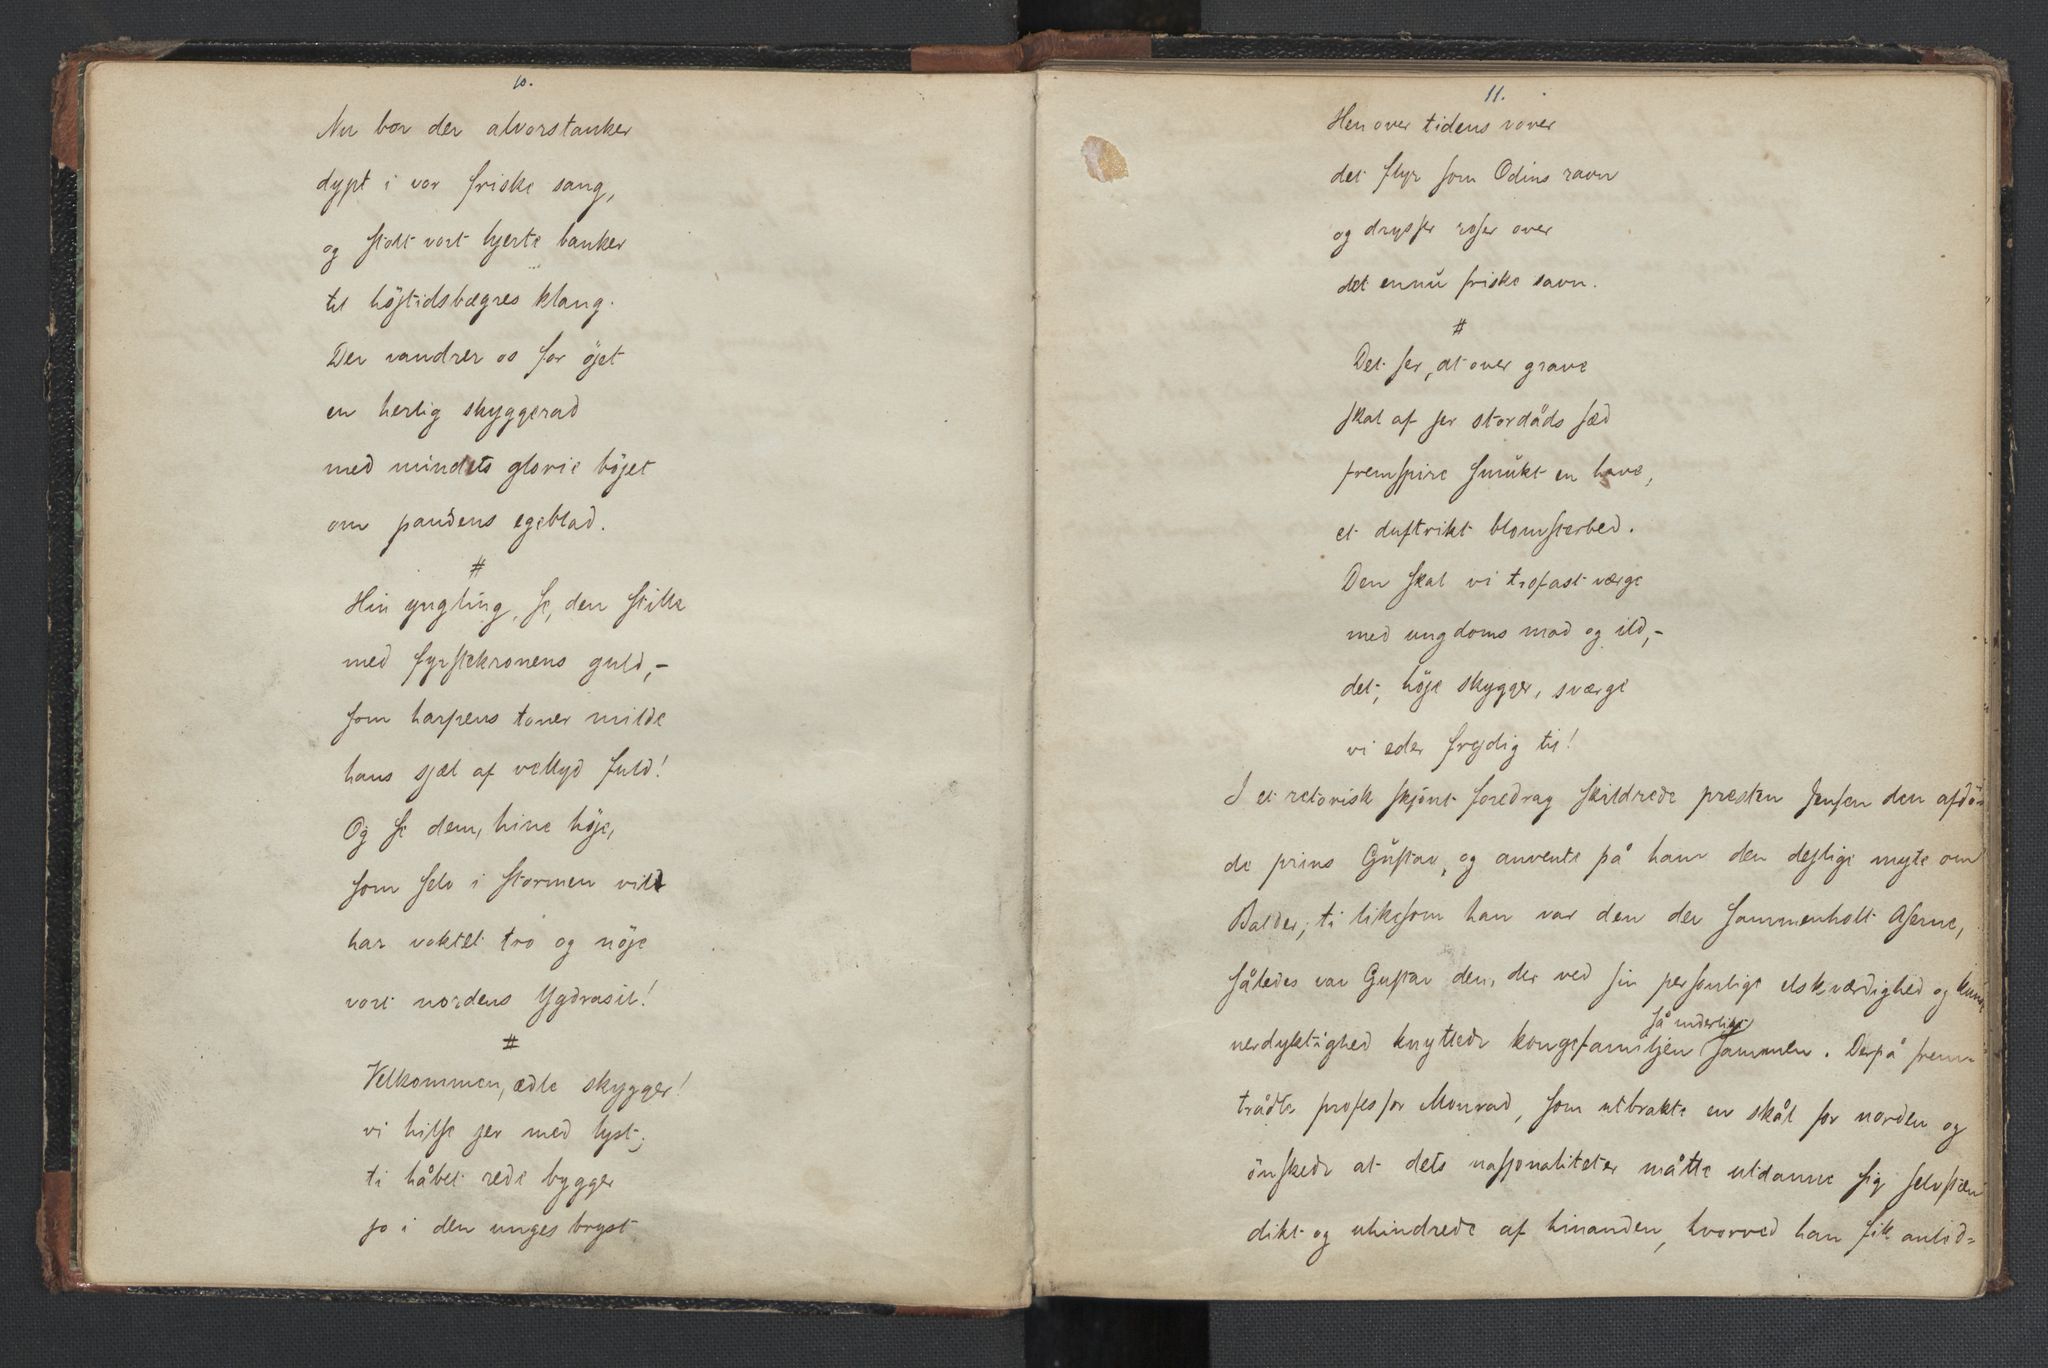 10.
Nu bor der alvorstanker
dypt i vor friske sang,
og stolt vort hjerte banker
til højtidsbægres klang.
Der vandrer os for øjet
en herlig skyggerad
med mindets glorie bøjet
om pandens egeblad.
#
Hin yngling, se, den stille
med fyrstekronens guld,-
som harpens toner milde
hans sjæl af vellyd fuld!
Og se dem, hine høje,
som selv i stormen vild
har voktet tro og nøje
vort nordens Ygdrasil!
#
Velkommen, ædle skygger!
vi hilse jer med lyst;
ti håbet rede bygger
jo i den unges bryst
11.
Hen over tidens vover
det flyr som Odins ravn
og drysser roser over
det ennu friske savn.
#
Det ser, at over grave
skal af jer stordåds sæd
fremspire smukt en have,
et duftrikt blomsterbed.
Den skal vi trofast værge
med ungdoms mod og ild,-
det, høje skygger, sværge
vi eder frejdig til!
I et retorisk skjønt foredrag skildrede presten Jensen den afdøn
de prins Gustav, og anvente på ham den dejlige myte om
Balder; ti likesom han var den der sammenholt Aserne,
således var Gustav den, der ved sin personlige elskværdighed og kunst
nerdyktighed knyttede kongefamiljen så inderligt sammen. Derpå frem-
trådte professor Monrad, som utbrakte en skål for norden og
ønskede at dets nasjonaliteter måtte utdanne sig selvstæn
dikt og uhindrede af hinanden, hvorved han fik anled=